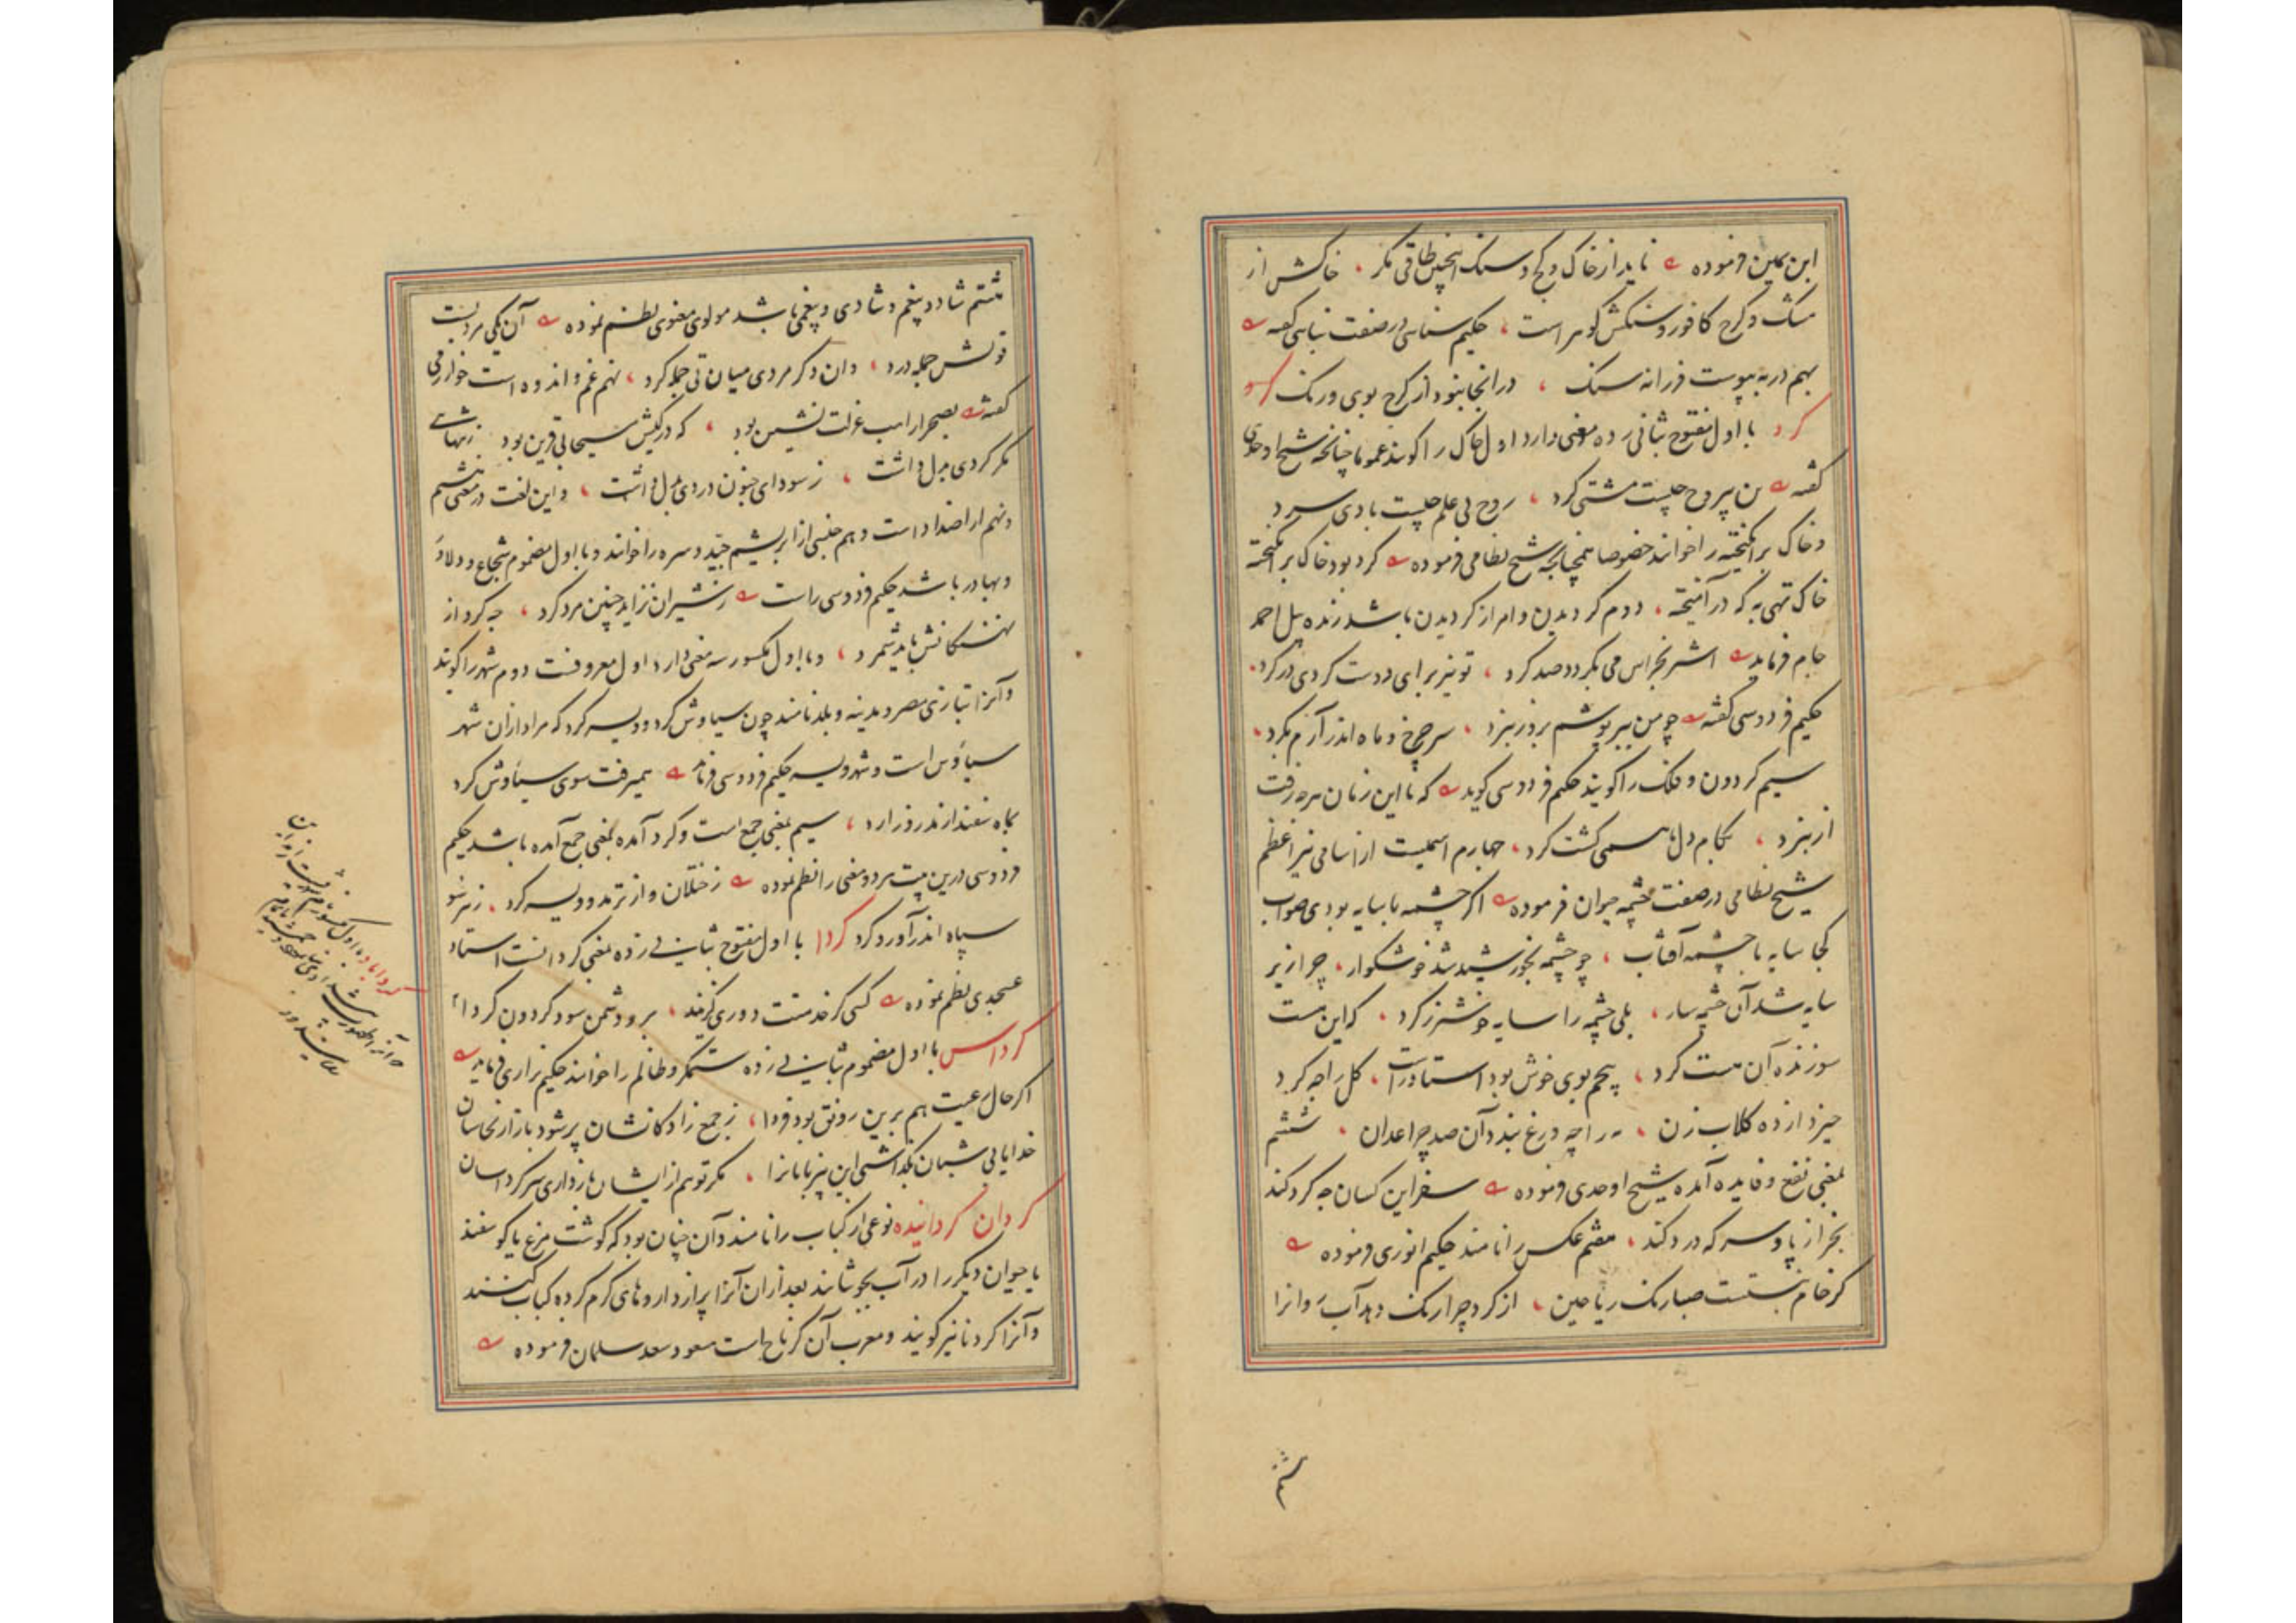 ابن یمین فرموده ناید از خاک و کج و سنک اینچنین طاقی مکر خاکش از
مشک و کرج کافور و سنکش کوهر است حکیم سنایی در صفت بنایی کفته
بهم در به پیوست فرزانه سنک در انجا نبود از کرج بوی و رنک
کرد با اول مفتوح بثانی زده ده معنی دارد اول خاک را کویند عموما چنانچه شیخ اوحدی
کفته تن بی روح چیست مشتی کرد روح بی علم چیست بادی سرد
و خاک برانکیخته را خوانند خصوصا همچنانچه شیخ نظامی فرموده کرد بود خاک برانکیخته
خاک تهی به که درآمیخته دوم کردیدن و امر از کردیدن باشد زنده پیل احمد
جام فرماید اشتر بخراس می بکردد صد کرد تو نیز برای دوست کردی در کرد
حکیم فردوسی کفته چو من ببر پوشم بروز نبرد سر چرخ و ماه اندر آرم بکرد
سیم کردون و فلک را کویند حکیم فردوسی کوید که تا این زمان هرچه رفت
از نبرد بکام دل ما همی کشت کرد چهارم اسمیست از اسامی نیر اعظم
شیخ نظامی در صفت چشمه حیوان فرموده اکر چشمه با سایه بودی صواب
کجا سایه با چشمه آفتاب چو چشمه بخورشید شد خوشکوار چرا زیر
سایه شد آن چشمه سار بلی چشمه را سایه خوشتر ز کرد که این هست
سوزنده آن هست کرد پنجم بوی خوش بود استاد راست کل را چه کرد
خیزد از ده کلاب زن مه را چه درغ بندد آن صد چراغدان ششم
بمعنی نفع و فایده آمده شیخ اوحدی فرموده سفر این کسان چه کرد کند
بجز از پا و سر که درد کند هفتم عکس را نامند حکیم انوری فرموده
کر خام نبستست صبا رنک ریاحین از کرد چرا رنک دهد آب روانرا
هشتم
هشتم شاد و بیغم و شادی و بیغمی باشد مولوی معنوی نظم نموده آن یکی مردیست
قوتش جمله درد وان دکر مردی میان تی جمله کرد نهم غم و اندوه است خوارزمی
کفته بصحرا راهب عزلت نشین بود که در کیش مسیحا بی قرین بود ز تنهایی
مکر کردی بدل داشت ز سودای جنون دردی بدل داشت و این لغت در معنی هشتم
و نهم از اضداد است دهم جنسی از ابریشم جید و سره را خوانند و با اول مضموم شجاع و دلاور
و بهادر باشد حکیم فردوسی راست ز شیران نزاید چنین مرد کرد چه کرد از
نهنکانش باید شمرد و با اول مکسور سه معنی دارد اول معروفست دوم شهر را کویند
و آنرا بتازی مصر و مدینه و بلد نامند چون سیاوش کرد و ویسه کرد که مراد از ان شهر
سیاوش است و شهر ویسه حکیم فردوسی فرماید همیرفت سوی سیاوش کرد
بماه سفندارمذ روز ارد سیم بمعنی جمع است و کرد آمده بمعنی جمع آمده باشد حکیم
فردوسی درین بیت هر دو معنی را نظم نموده ز ختلان و از ترمذ و ویسه کرد ز هر سو
سپاه اندرآورد کرد کردا با اول مفتوح بثانی زده بمعنی کردانست استاد
عسجدی نظم نموده کسی کز خدمتت دوری کزیند برو دشمن سود کردون کردا
کرداس با اول مضموم بثانی زده ستمکر و ظالم را خوانند حکیم نزاری فرماید
اکر حال رعیت هم برین رونق بود فردا ز جمع زادکانشان پر شود بازار نخاسان
خدایا بی شبان نکذاشتی این بیزبانانرا مکر تو هم از ایشان بازداری سر کرداسان
کردان کردانیده نوعی از کباب را نامند و آن چنان بود که کوشت مرغ یا کوسفند
یا حیوان دیکر را در آب بجوشانند بعد از ان آنرا پر از داروهای کرم کرده کباب کنند
و آنرا کردنا نیز کویند و معرب آن کرناج است مسعود سعد سلمان فرموده
کرداباد با اول مکسور نام